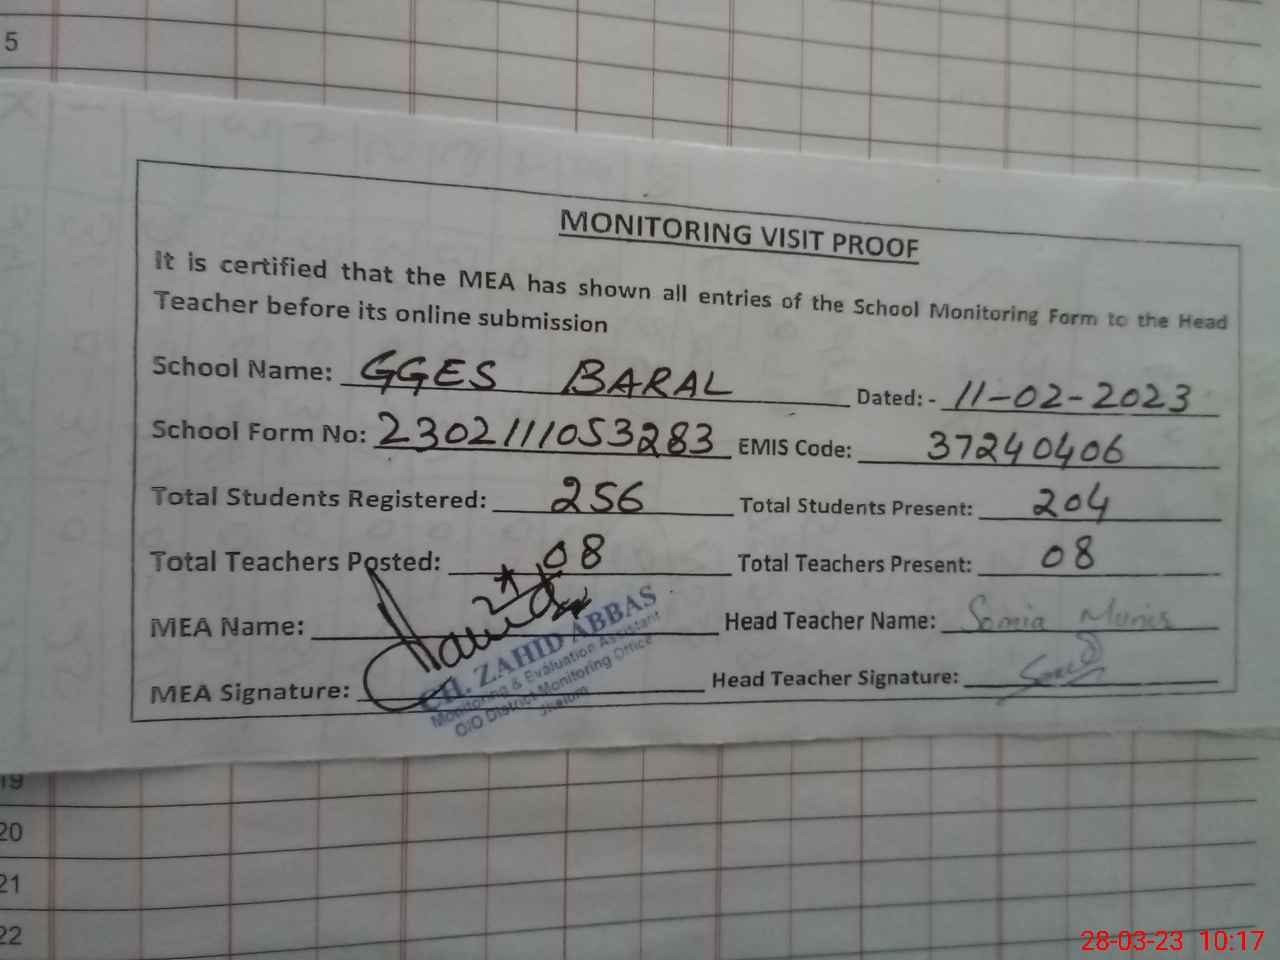 5
MONITORING VISIT PROOF
It is certified that the MEA has shown all entries of the School Monitoring Form to the Head
Teacher before its online submission
School Name: GGES BARAL Dated: - 11-02-2023
School Form No: 2302111053283 EMIS Code: 37240406
Total Students Registered: 256 Total Students Present: 204
Total Teachers Posted: 08 Total Teachers Present: 08
MEA Name: Head Teacher Name: Samia
MEA Signature: Head Teacher Signature:
CH. ZAHID ABBAS
Monitoring & Evaluation Assistant
O/O District Monitoring Office
Jhelum
19
20
21
22
28-03-23 10:17